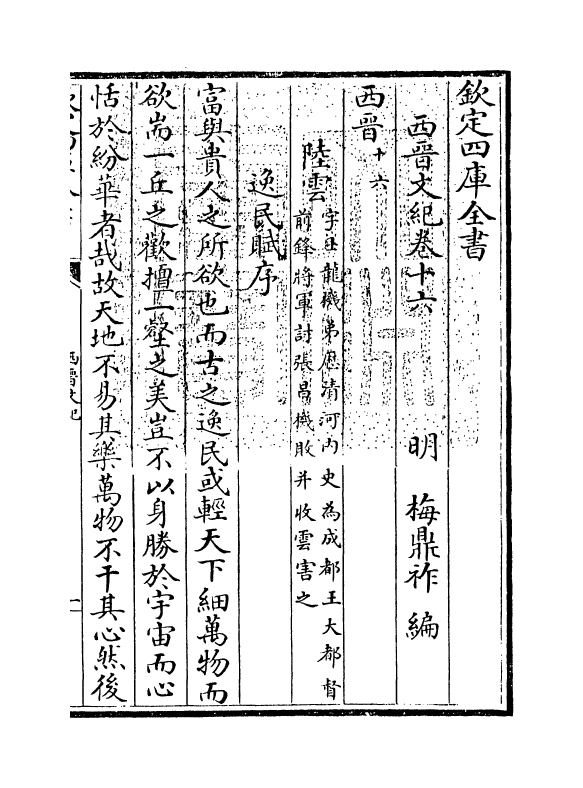 欽定四庫全書
西晉文紀卷十六
明　梅鼎祚　編
西晉十六
陸雲字士龍機弟歷清河內史為成都王大都督
前鋒將軍討張昌機敗并收雲害之
逸民賦序
富與貴人之所欲也而古之逸民或輕天下細萬物而
欲耑一丘之歡擅一壑之美豈不以身勝於宇宙而心
恬於紛華者哉故天地不易其樂萬物不干其心然後
西晉文紀
一